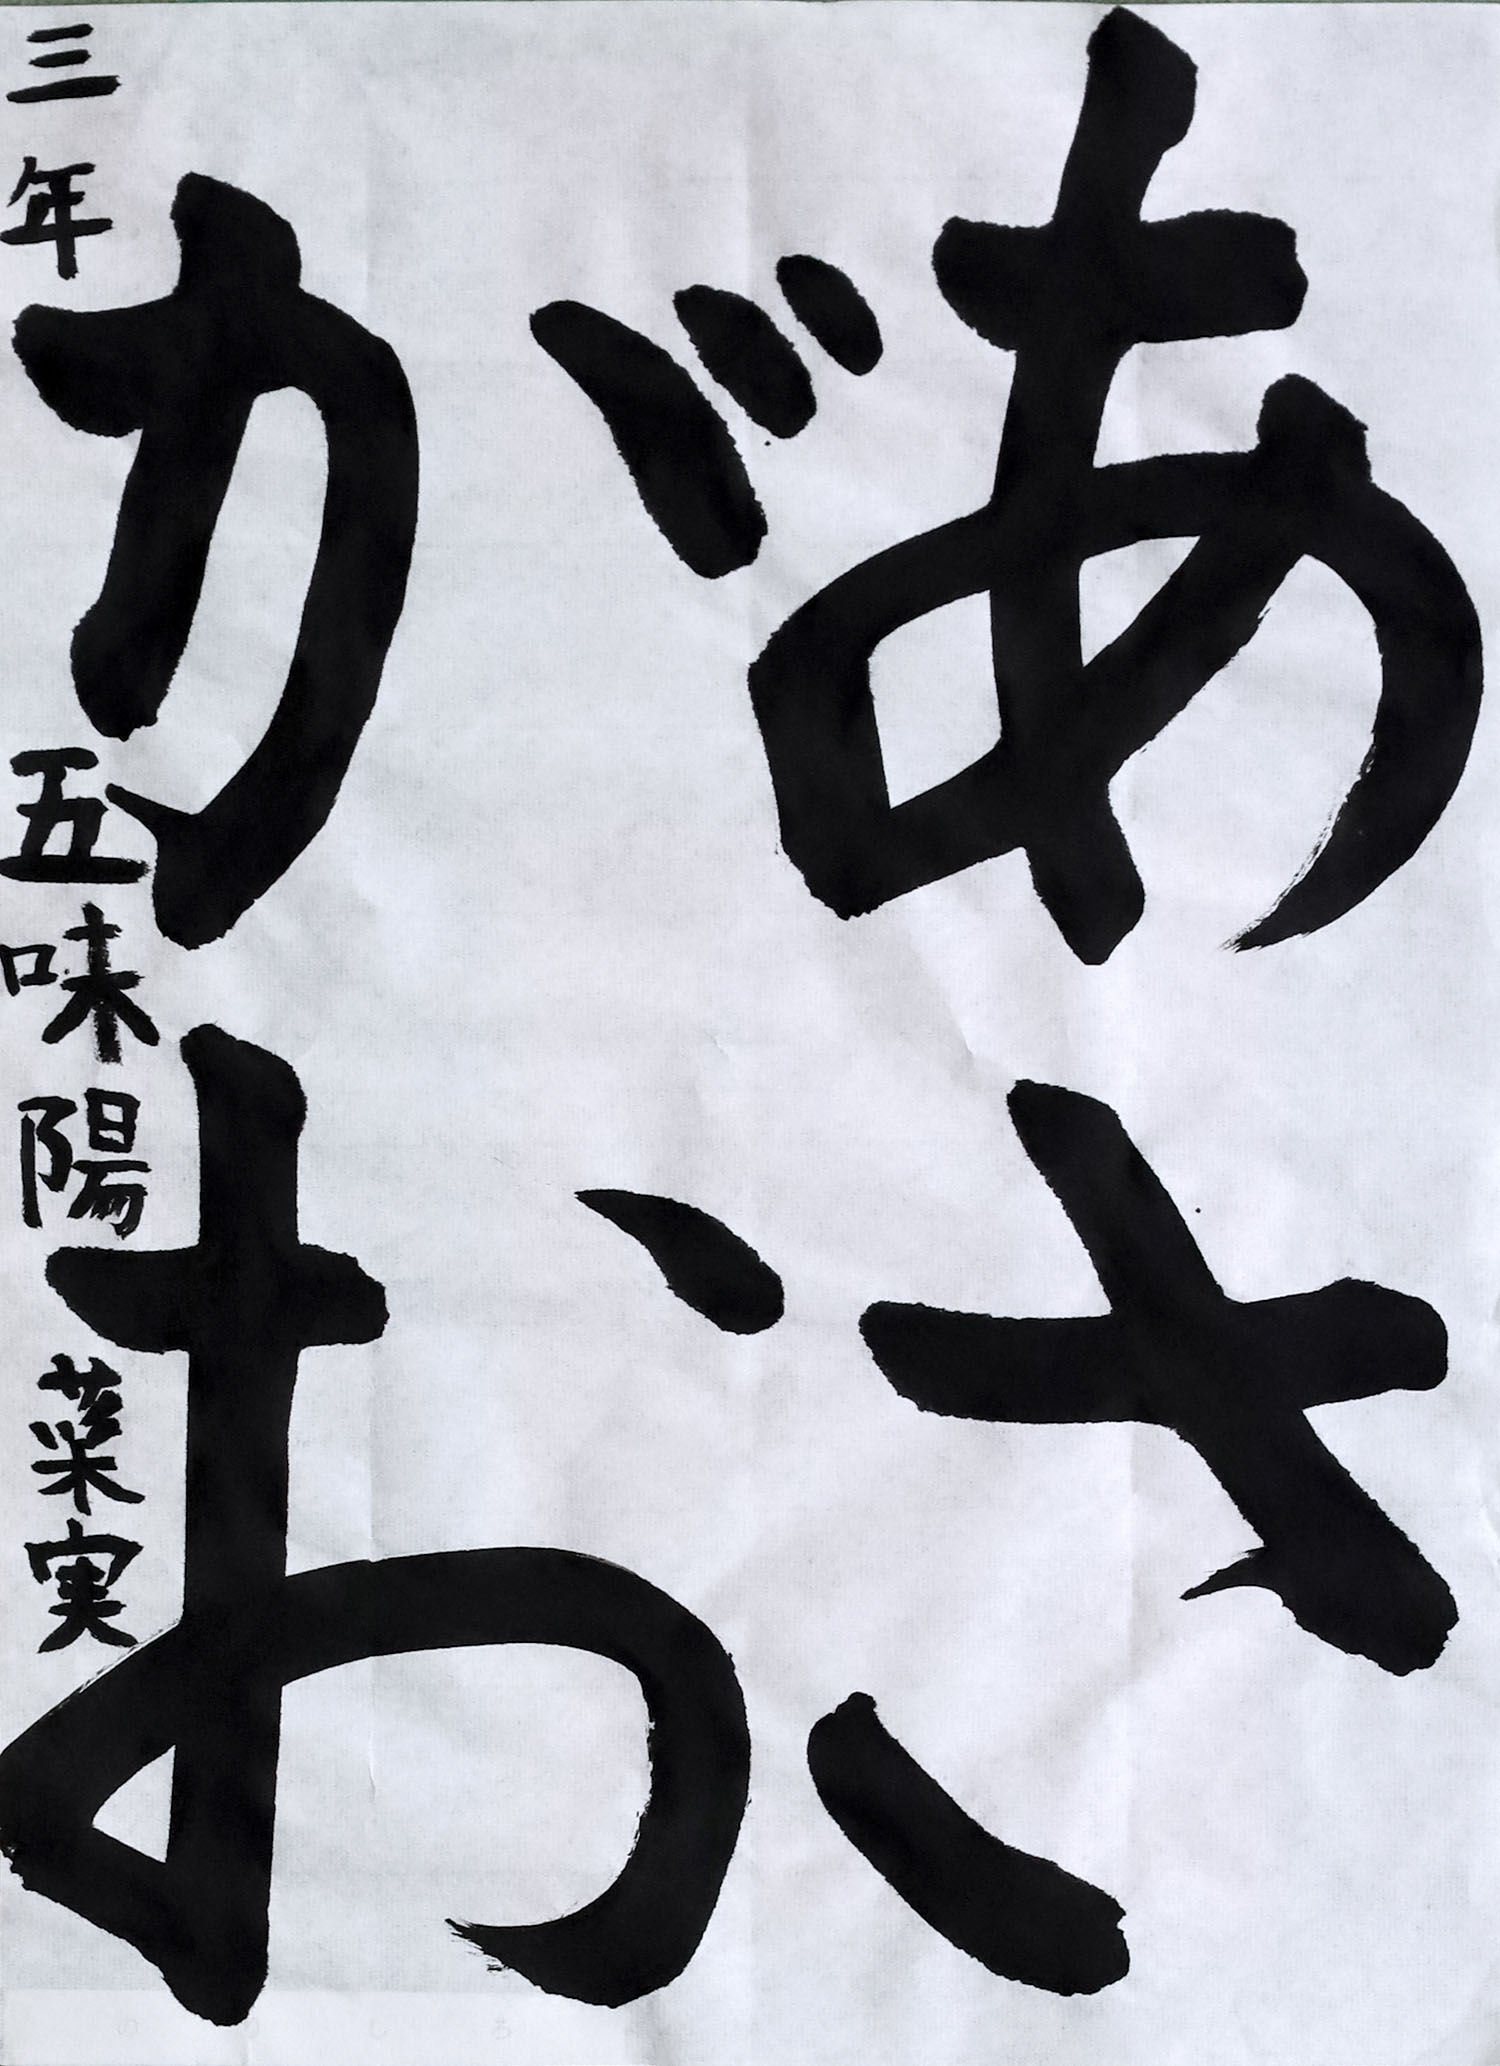 あさ
がお
三年 五味陽菜実